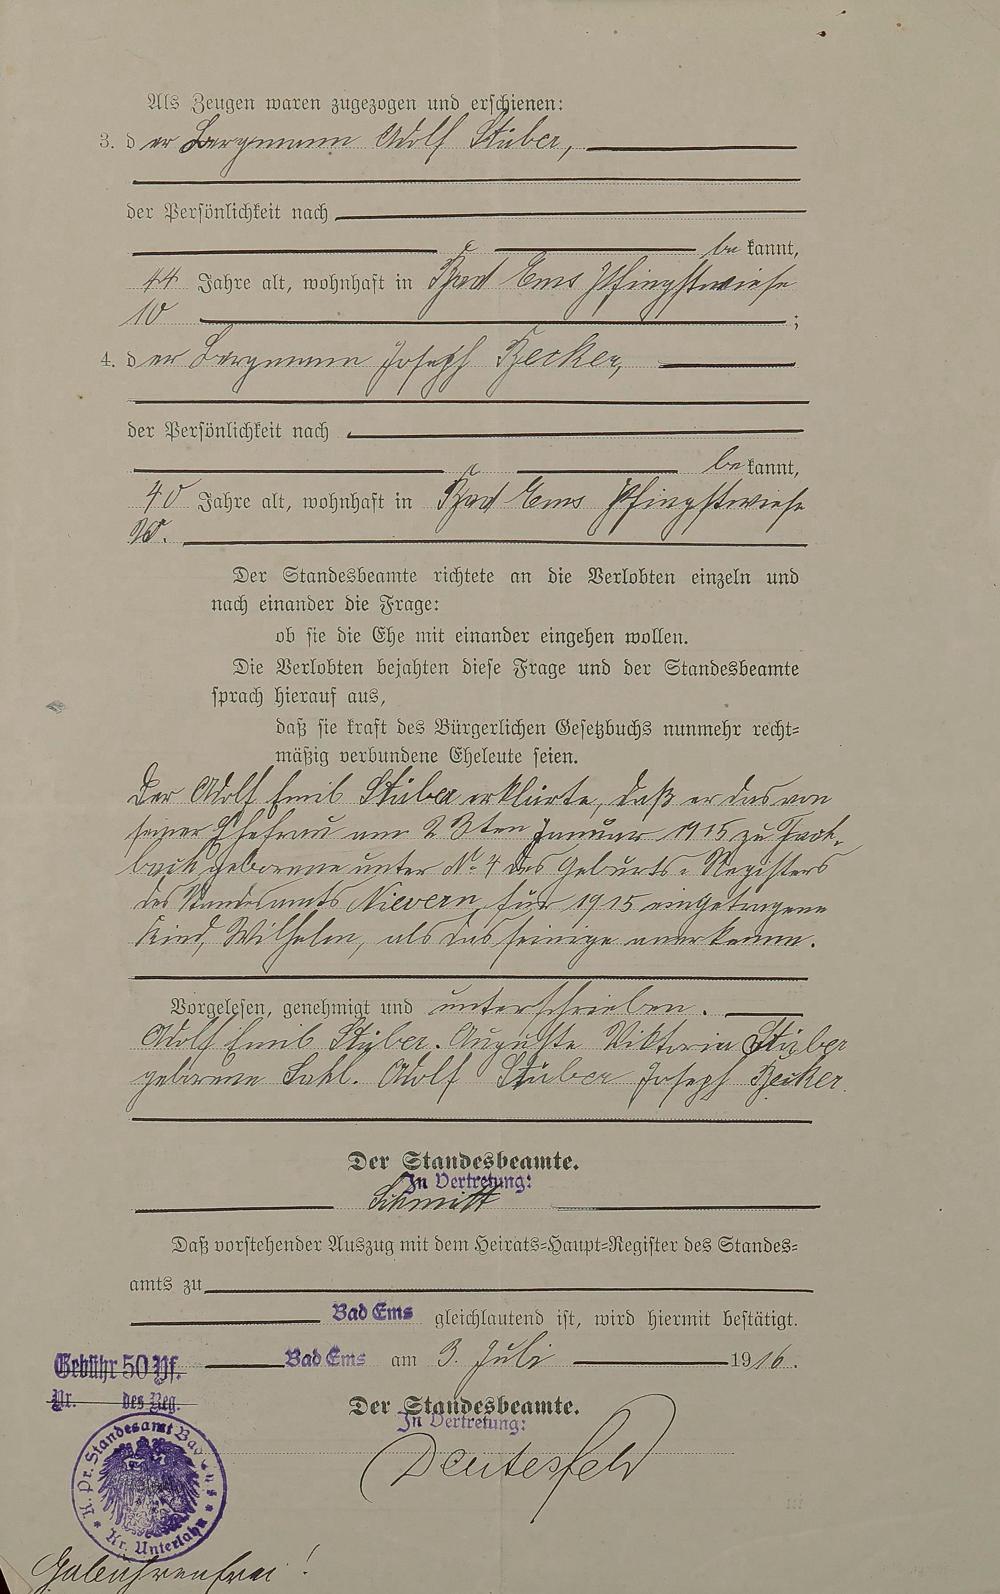 Als Zeugen waren zugezogen und erschienen:
3. der Bergmann Adolf Stüber,
der Persönlichkeit nach
bekannt,
44 Jahre alt, wohnhaft in Bad Ems Pfingstwiese
10 ;
4. der Bergmann Joseph Becker,
der Persönlichkeit nach
bekannt,
40 Jahre alt, wohnhaft in Bad Ems Pfingstwiese
Der Standesbeamte richtete an die Verlobten einzeln und
nach einander die Frage:
ob sie die Ehe mit einander eingehen wollen.
Die Verlobten bejahten diese Frage und der Standesbeamte
sprach hierauf aus,
daß sie kraft des Bürgerlichen Gesetzbuchs nunmehr recht=
mäßig verbundene Eheleute seien.
Der Adolf Emil Stüber erklärte, daß er das von
seiner Ehefrau am 23ten Januar 1915 zu Frücht
geborene unter No. 4 des Geburts=Registers
des Standesamts Nievern für 1915 eingetragene
Kind, Wilhelm, als das seinige anerkenne.
Vorgelesen, genehmigt und unterschrieben.
Adolf Emil Stüber. Auguste Viktoria Stüber
geborene Sahl. Adolf Stüber Joseph Becker.
Der Standesbeamte.
In Vertretung:
Schmitt
Daß vorstehender Auszug mit dem Heirats=Haupt=Register des Standes=
amts zu
Bad Ems gleichlautend ist, wird hiermit bestätigt.
Gebühr 50 Pf.
Bad Ems am 3. Juli 1916.
Nr. des Reg.
Der Standesbeamte.
In Vertretung:
K. Pr. Standesamt Bad Ems
* Kr. Unterlahn *
Gebührenfrei!